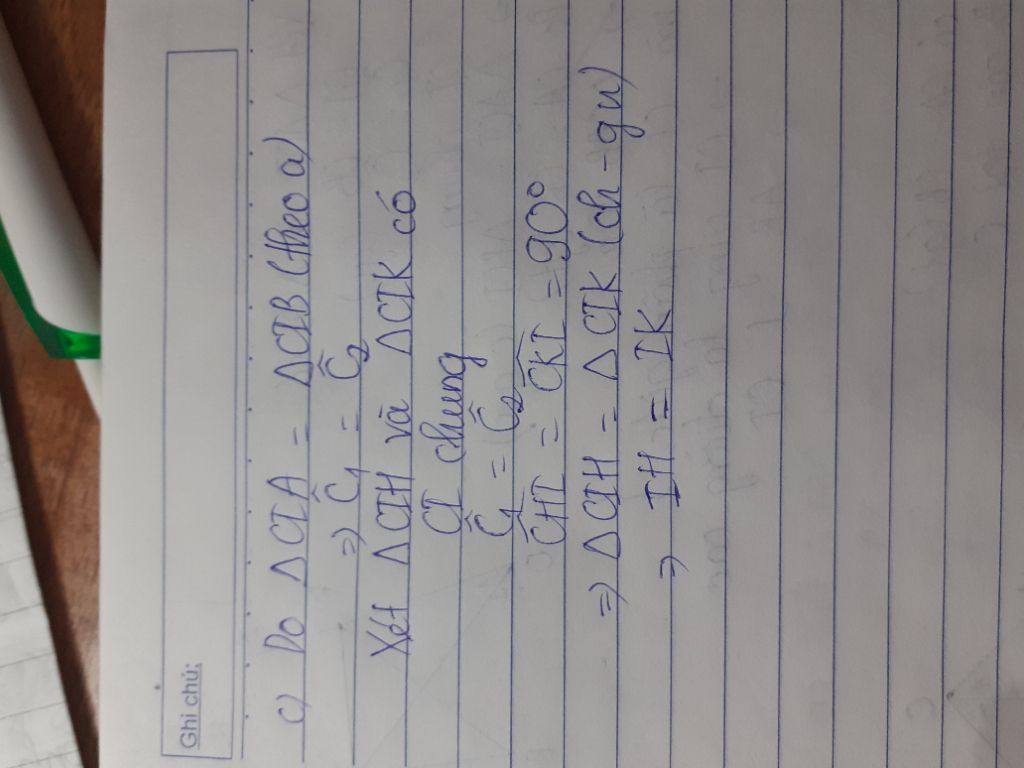 Ghi chú:
c) Do ΔCIA = ΔCIB (theo a)
=> Ĉ₁ = Ĉ₂
Xét ΔCIH và ΔCIK có
CI chung
Ĉ₁ = Ĉ₂
\widehat{CHI} = \widehat{CKI} = 90°
=> ΔCIH = ΔCIK (ch - gn)
=> IH = IK